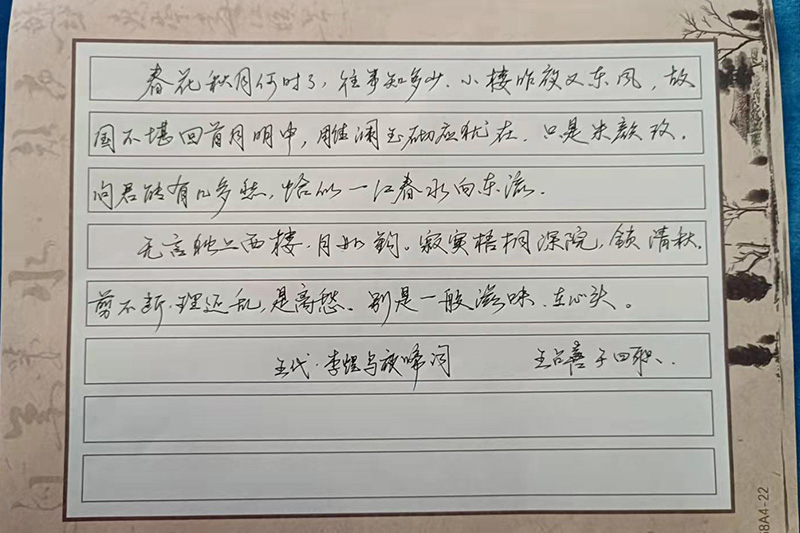 春花秋月何时了，往事知多少．小楼昨夜又东风，故
国不堪回首月明中，雕阑玉砌应犹在．只是朱颜改．
问君能有几多愁，恰似一江春水向东流．
无言独上西楼．月如钩。寂寞梧桐深院，锁清秋．
剪不断．理还乱，是离愁．别是一般滋味．在心头。
五代·李煜乌夜啼词
68A4-22